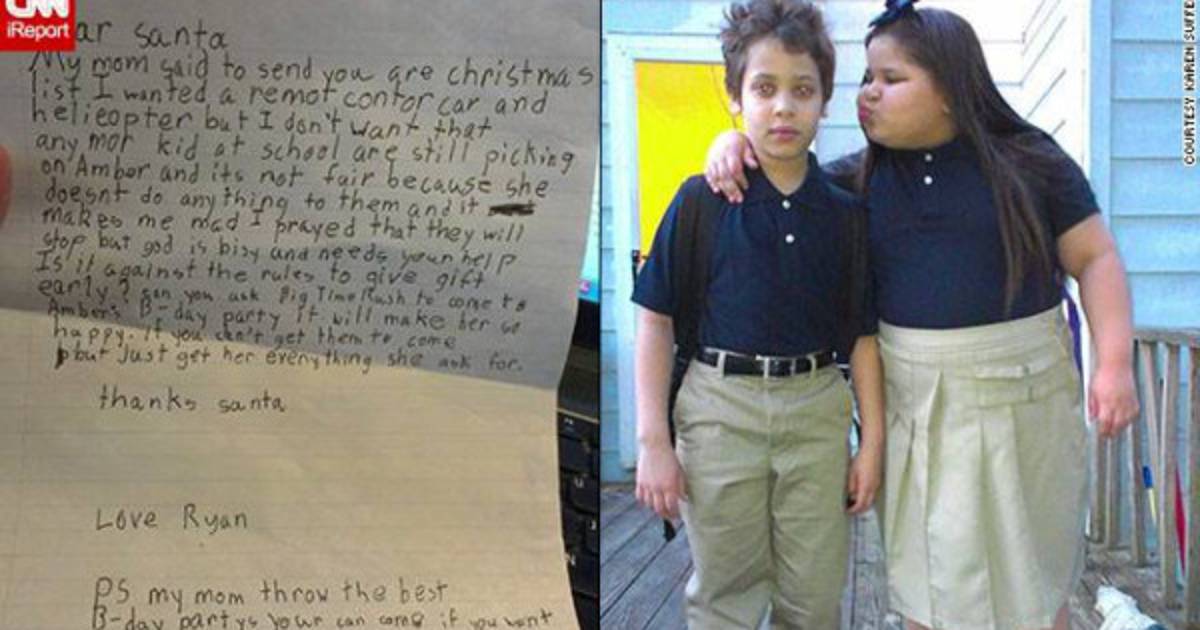 CNN
iReport
ar santa
My mom said to send you are christmas
list I wanted a remot contor car and
helicopter but I don't want that
any mor kid at school are still picking
on Amber and its not fair because she
doesnt do any thing to them and it
makes me mad I prayed that they will
stop but god is bisy and needs your help
Is it against the rules to give gift
early? can you ask Big Time Rush to come to
Amber's B-day party it will make her so
happy. If you can't get them to come
but just get her everything she ask for.
thanks santa
Love Ryan
PS my mom throw the best
B-day partys your can come if you want
COURTESY KAREN SUFFE